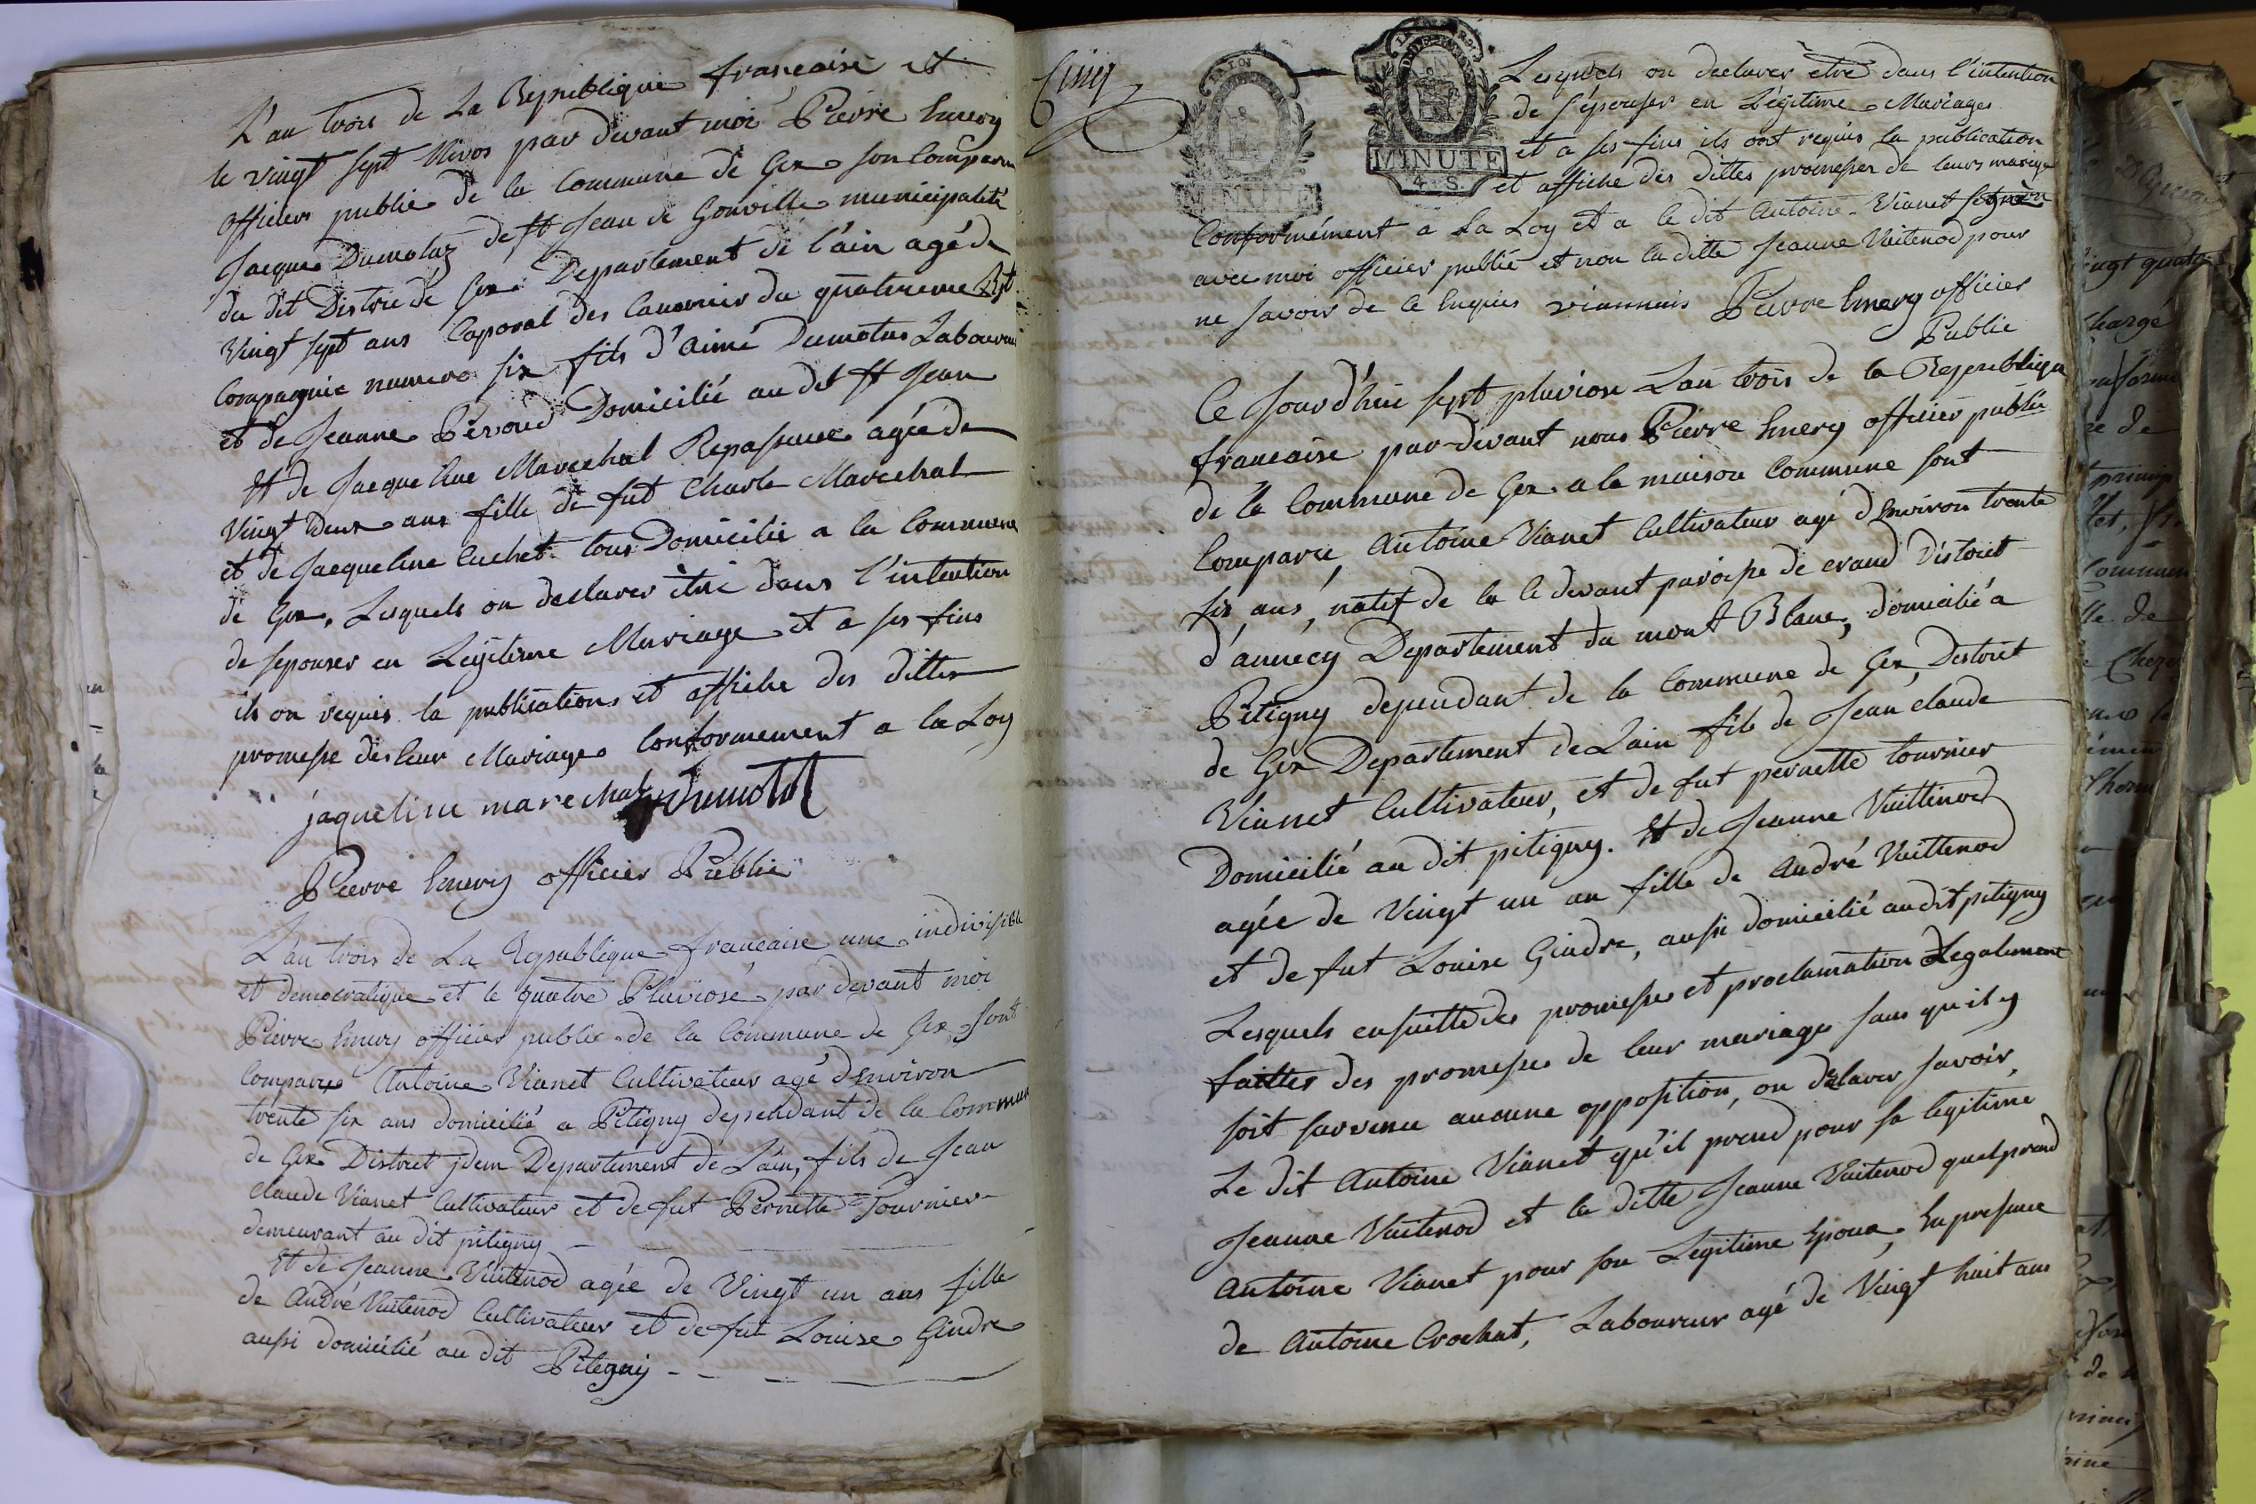 L'an trois de La Republique francaise et
le vingt sept Nivos par devant moi Pierre Emery
officier public de la Commune de Gex son Comparu
Jacque Dumolaz de St Jean de Gonville municipalité
du dit District de Gex Departement de l'ain agé de
Vingt sept ans Caporal des Canonier du quatrieme
Compagnie numero six fils d'aimé Dumolas Laboureur
et de Jeanne Péroud Domicilié au dit St Jean
Et de Jacqueline Marechal Repasseuse agée de
Vingt deux ans fille de fut Charle Marechal
et de Jacqueline Cuchet tous Domicilié a la Commune
de Gex, Lesquels on declarer être dans l'intention
de sepouser en Legitime Mariage et a ses fins
ils on requis la publications et affiche des dittes
promesse de leur Mariage Conformement a la Loy
jaqueline marechal Dumolat
Pierre Emery officier Publie
L'an trois de La Republique francaise une indivisible
et democratique et le quatre Pluviose par devant moi
Pierre Emery officier public de la Commune de Gex sont
Comparu Antoine Vianet Cultivateur agé d'Environ
trente six ans domicilié a Pitigny dependant de la Commune
de Gex District jdem Departement de L'ain, fils de Jean
claude Vianet Cultivateur et de fut Pernette Tournier
demeurant au dit pitigny
Et de Jeanne Vuitenod agée de Vingt un ans fille
de André Vuitenod Cultivateur et de fut Louise Gindre
aussi domicilié au dit Pitegny
Cinq
LA LOI
MINUTE
MINUTE
4. S.
Lesquels on declarer etre dans l'intention
de s'épouser en Légitime Mariage
et a ses fins ils ont requis la publication
et affiche des dittes promesses de leurs mariage
Conformément a La Loy et a le dit Antoine Vianet signé
avec moi officier publie et non la ditte Jeanne Vuitenod pour
ne savoir de ce Enquis viannais Pierre Emery officier
Publie
Ce Jourd'hui sept pluviose L'an trois de la Republique
francaise par devant nous Pierre Emery officier public
de la Commune de Gex a la maison Commune sont
Comparu Antoine Vianet Cultivateur agé d'Environ trente
six ans, natif de la Ce devant paroisse de evaud District
d'annecy Departement du mont Blanc, domicilié a
Pitigny dependant de la Commune de Gex, District
de Gex Departement de L'ain fils de Jean claude
Vianet Cultivateur, et de fut pernette tournier
Domicilié au dit pitigny. Et de Jeanne Vuittinod
agée de Vingt un an fille de André Vuittenod
et de fut Louise Gindre, aussi domicilié au dit pitigny
Lesquels ensuitte des promesse et proclamation Legalement
faittes des promesses de leur mariage sans qu'il y
soit survenu aucune opposition, on declarer savoir,
Le dit Antoine Vianet qu'il prend pour sa legitime
Jeanne Vuitenod et la ditte Jeanne Vuitenod quel prend
Antoine Vianet pour son Legitime Epoux, En presence
de Antoine Crochat, Laboureur agé de Vingt huit ans